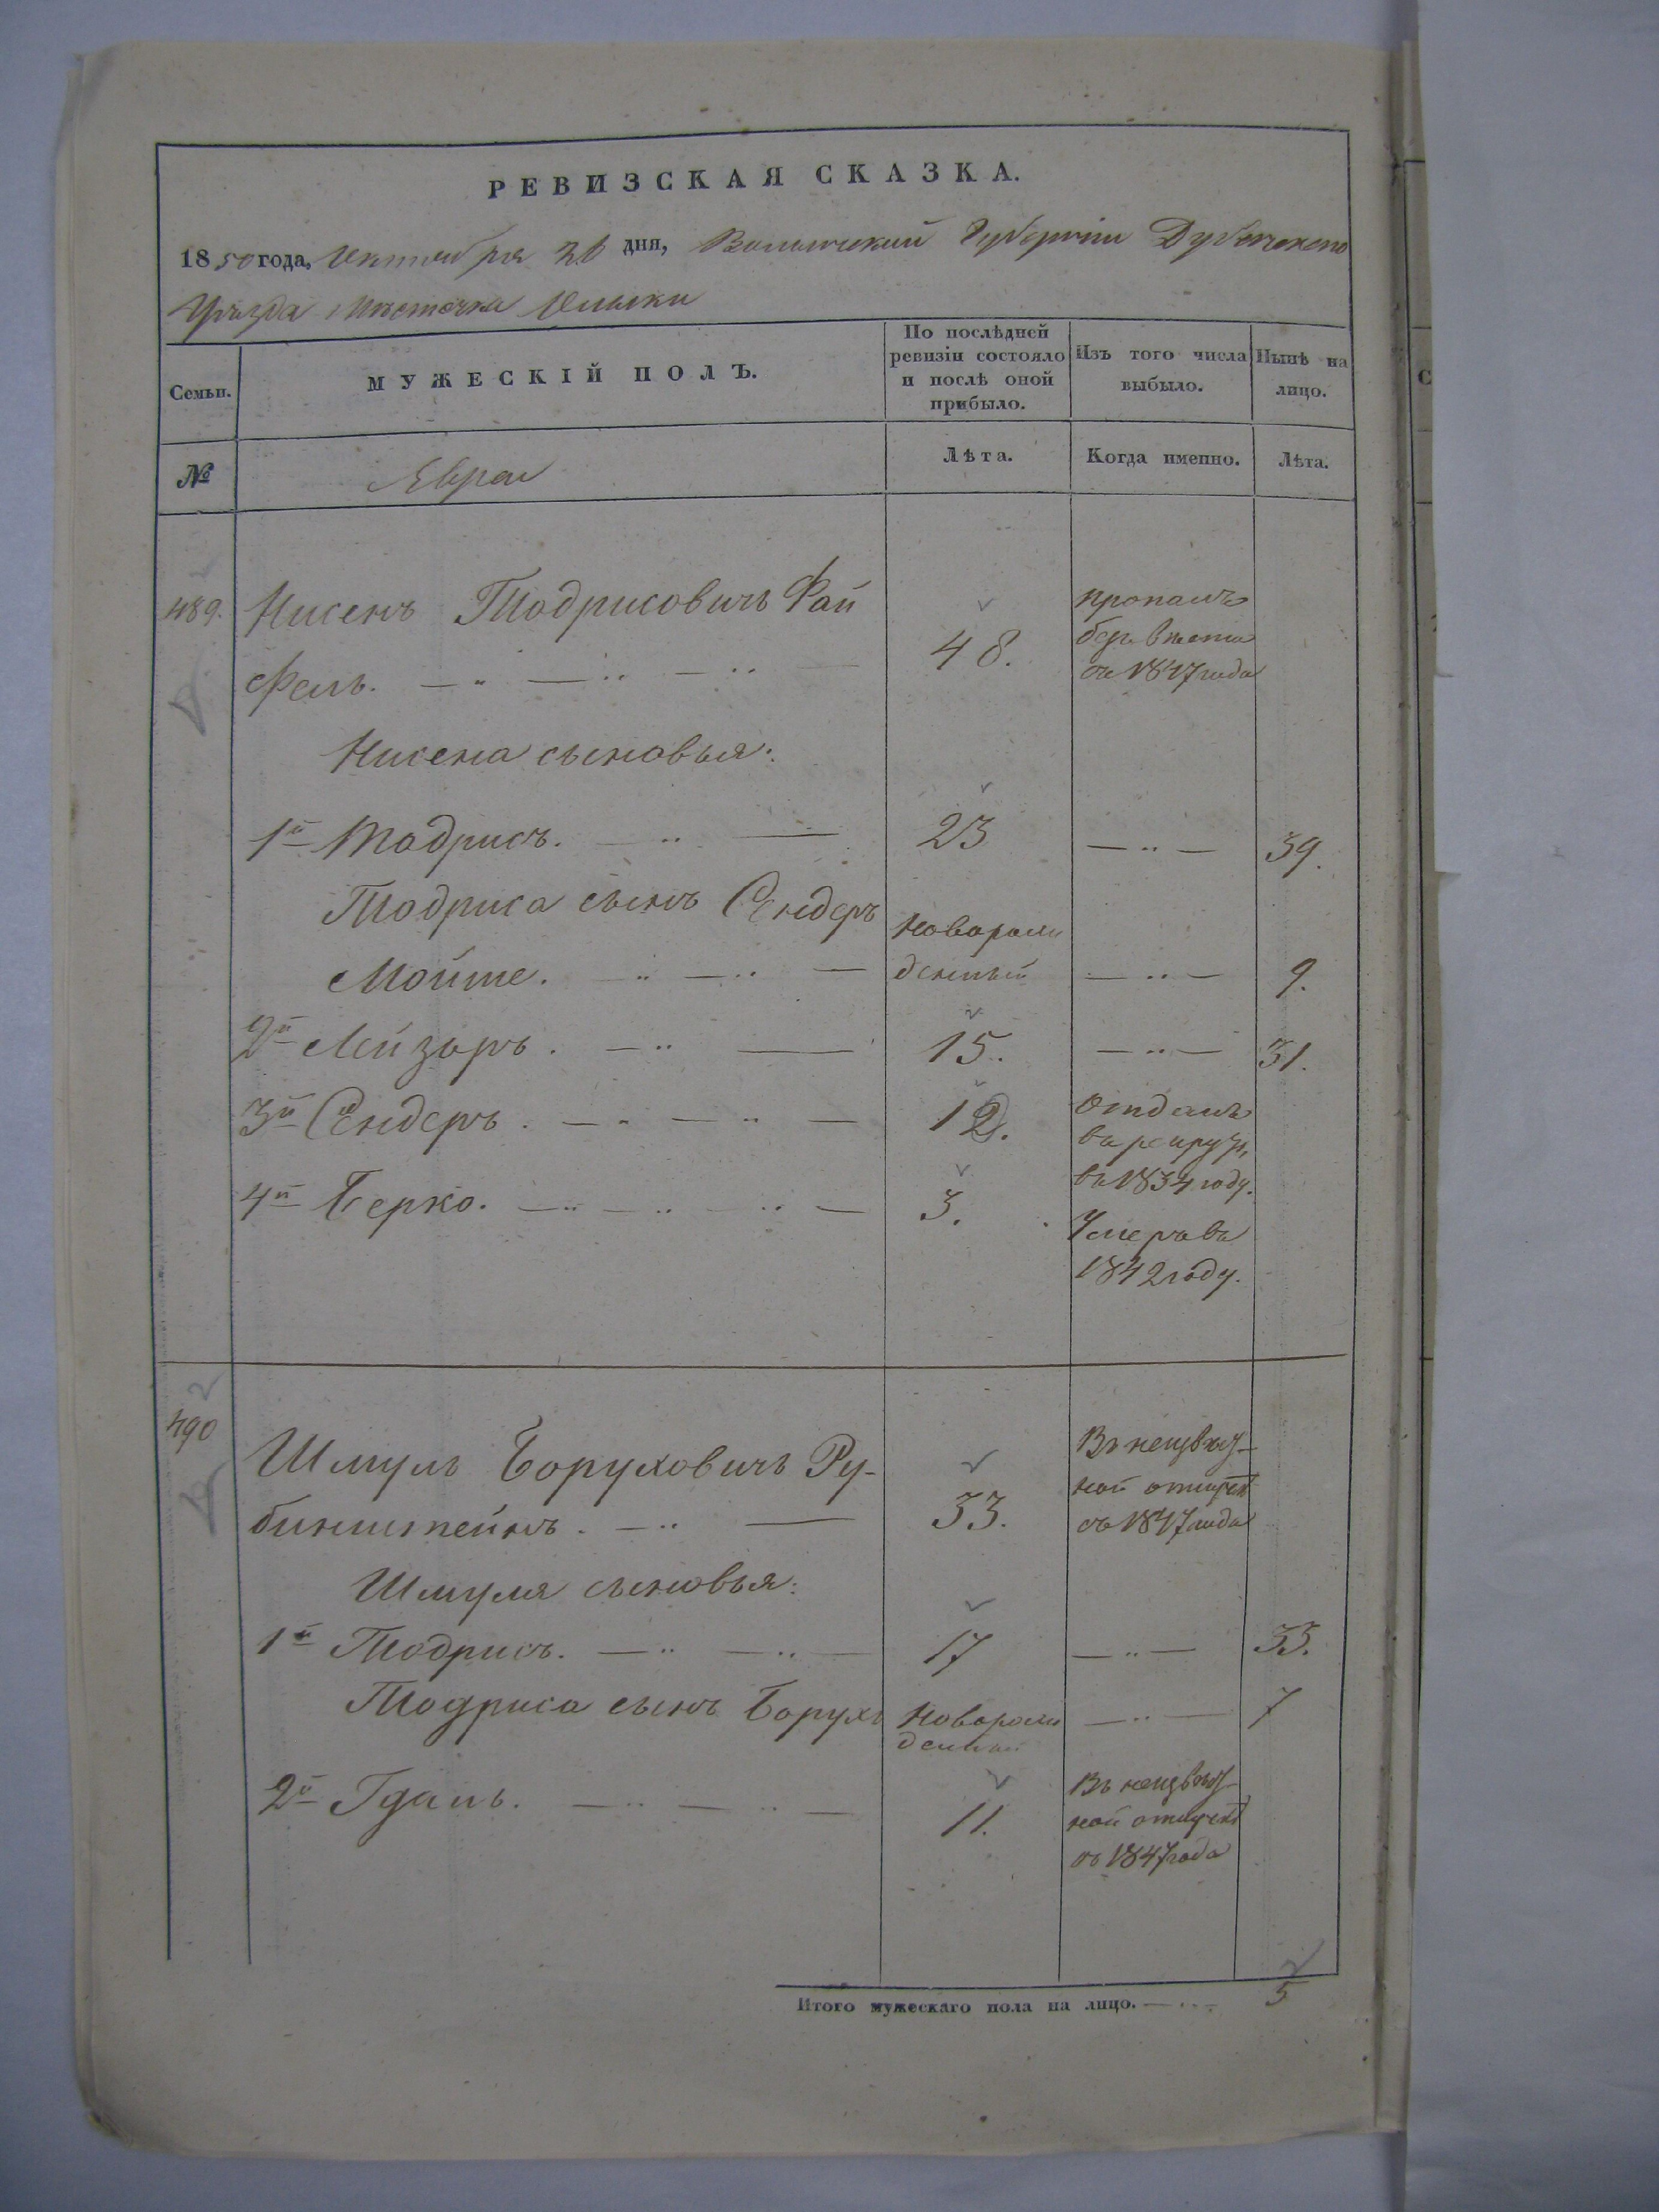 РЕВИЗСКАЯ СКАЗКА.
1850 года, Октября 26 дня, Волынской Губернiи Дубенскаго
Уѣзда Мѣстечка Олыки
Семьи.
МУЖЕСКIЙ ПОЛЪ.
По послѣдней ревизiи состояло и послѣ оной прибыло.
Изъ того числа выбыло.
Нынѣ на лицо.
№
Евреи
Лѣта.
Когда именно.
Лѣта.
489. Нисенъ Тодрисовичъ Фай
фель. 48. пропалъ безъ вѣсти съ 1847 года
Нисена сыновья:
1й Тодрисъ. 23 39.
Тодриса сынъ Сендеръ
Мойше. Новорожденный 9.
2й Лейзоръ. 15. 31.
3й Сендеръ. 12. Отданъ въ рекруты въ 1834 году.
4й Берко. 3. Умеръ въ 1842 году.
490 Шмуль Боруховичъ Ру-
бинштейнъ. 33. Въ неизвѣстной отлучкѣ съ 1847 года
Шмуля сыновья:
1й Тодрисъ. 17 33.
Тодриса сынъ Борухъ Новорожденный 7
2й Гдаль. 11. Въ неизвѣстной отлучкѣ съ 1847 года
Итого мужескаго пола на лицо. 5